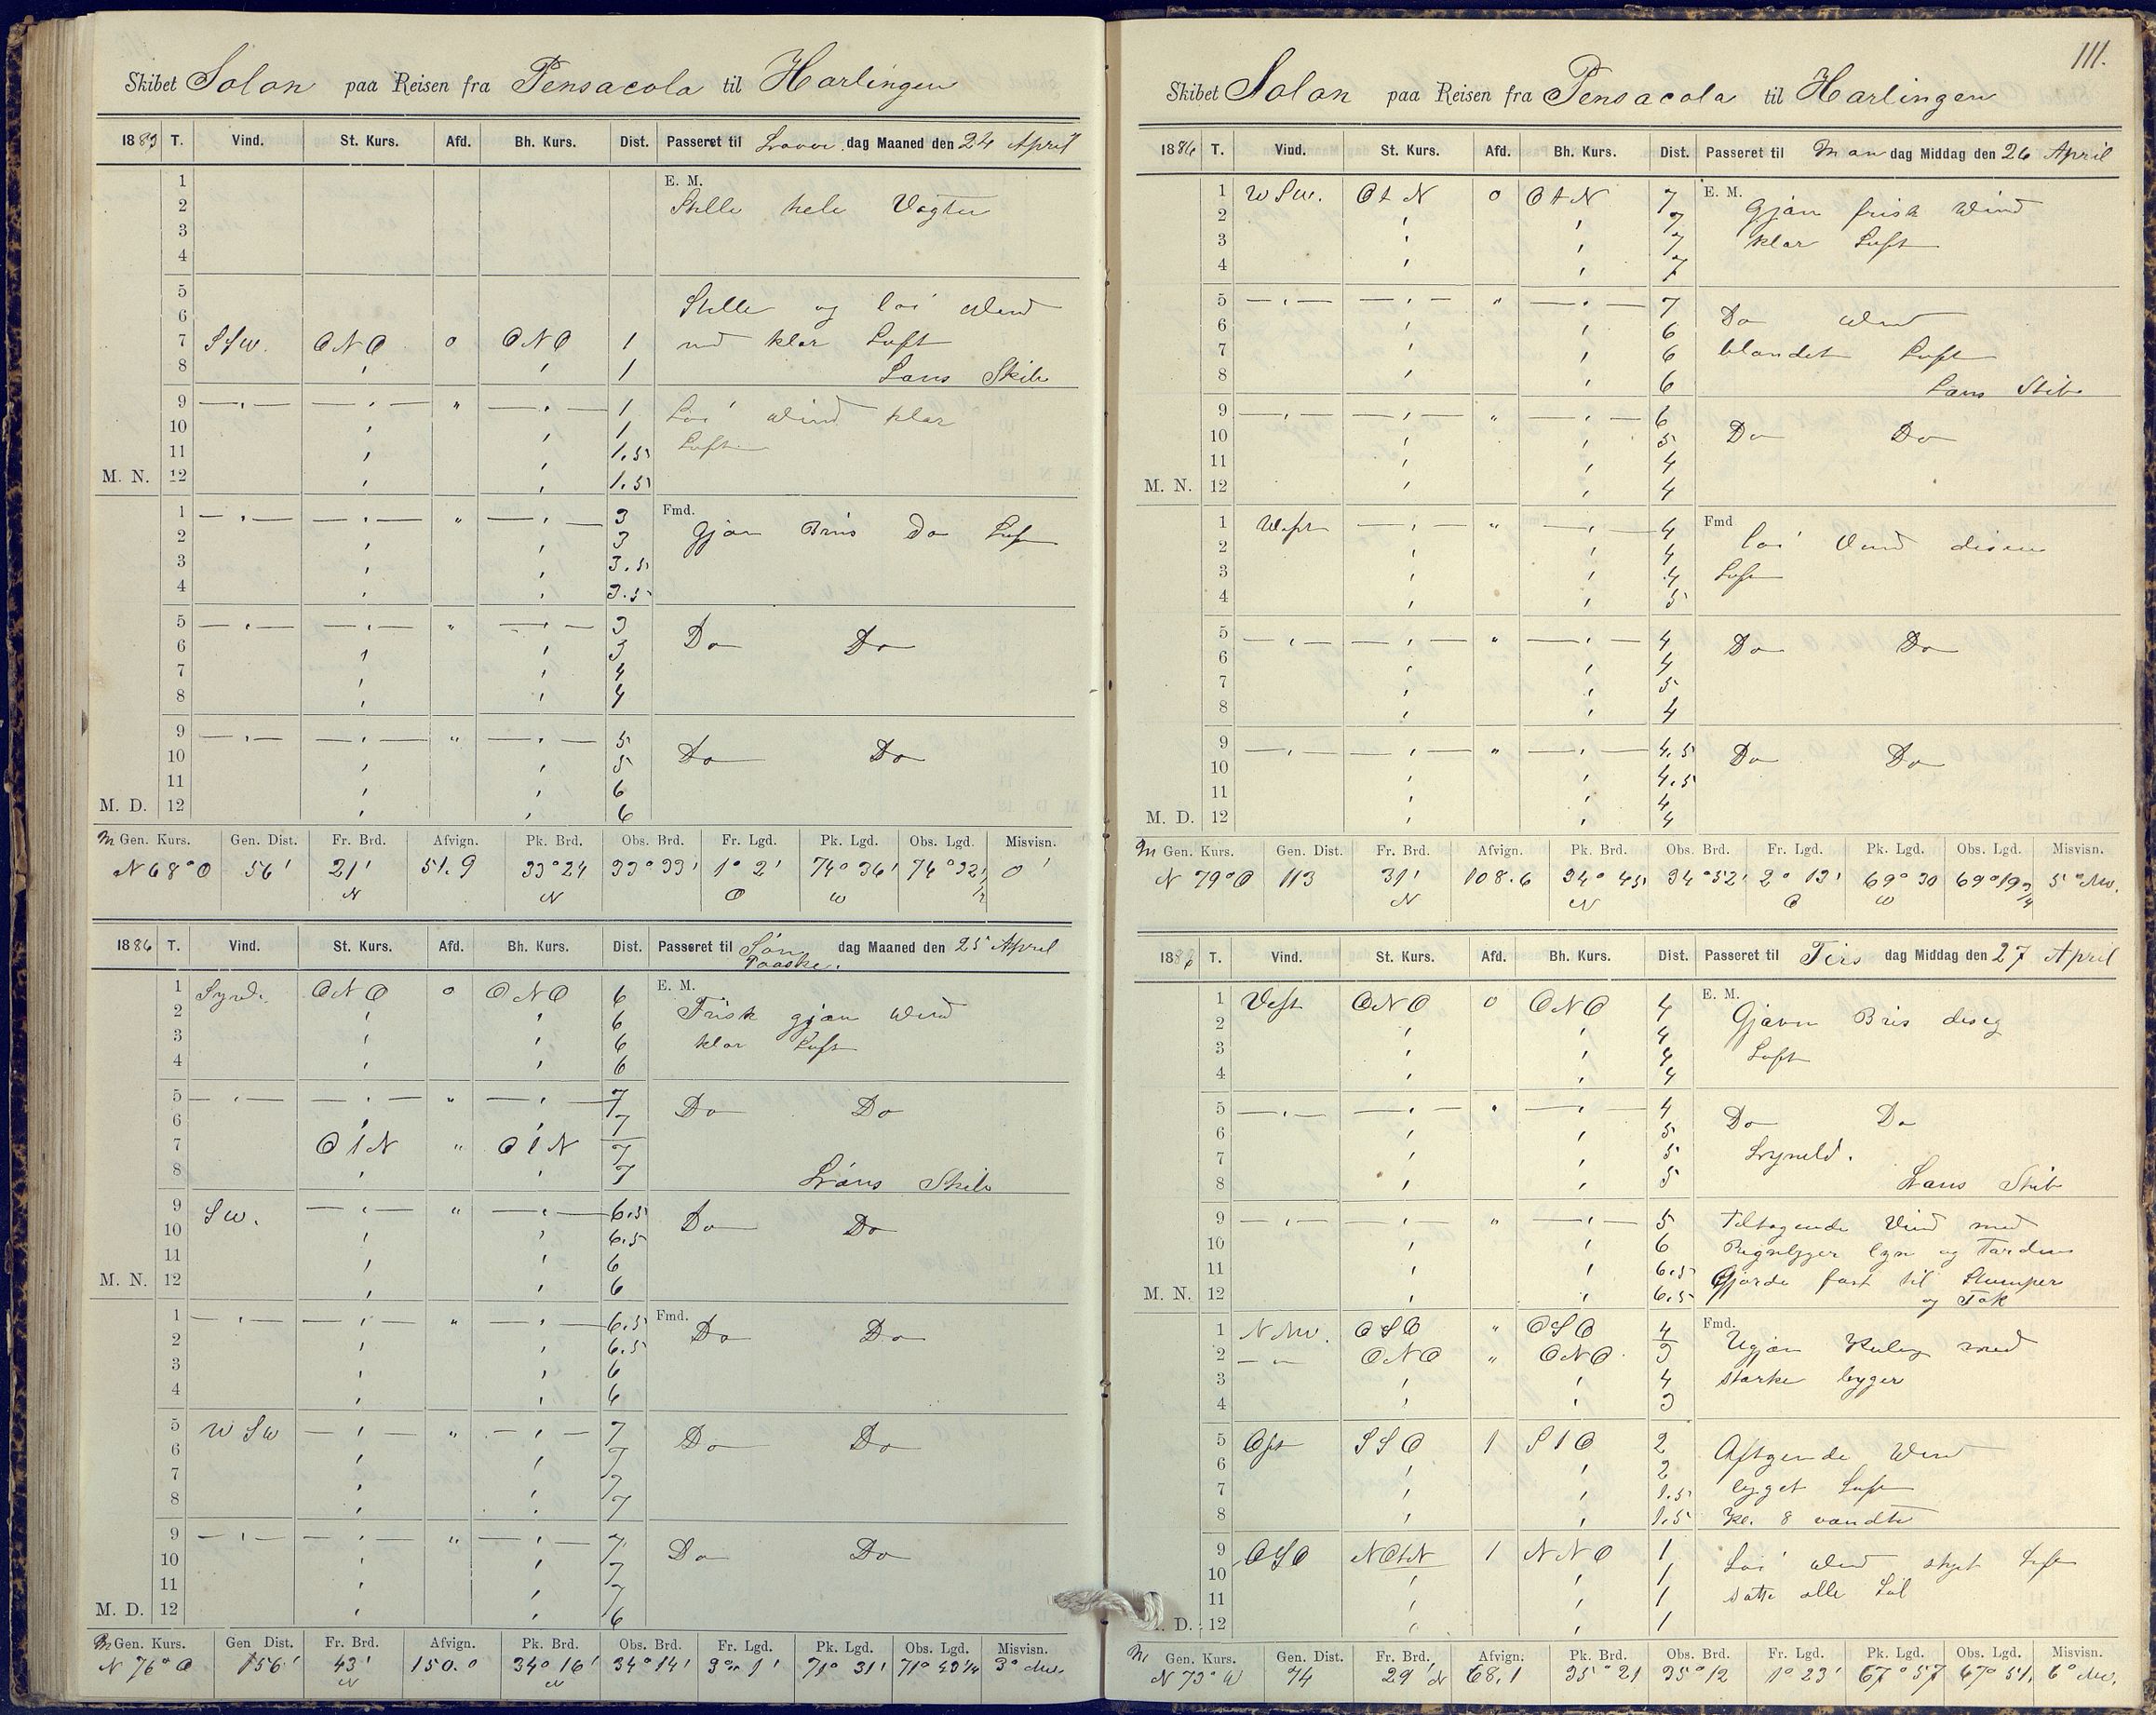 Skibet Solon paa Reisen fra Pensacola til Harlingen
1886 T. Vind. St. Kurs. Afd. Bh. Kurs. Dist. Passeret til dag Maaned den 24 April
1 E. M.
2 Stille hele Vagten
3
4
5
6 Stille og loi Wind
7 SSW. ONO 0 ONO 1 md klar Luft
8 " " 1 Lans Skib
9 —"— —"— " —"— 1 Loi Wind klar
10 " " 1 Luft
11 " " 1.5
M. N. 12 " " 1.5
1 —"— —"— " —"— 3 Fmd.
2 " " 3 Gjævn Bris Do Luft
3 " " 3.5
4 " " 3.5
5 —"— —"— " —"— 3
6 " " 3 Do Do
7 " " 4
8 " " 4
9 —"— —"— " —"— 5
10 " " 5 Do Do
11 " " 6
M. D. 12 " " 6
M Gen. Kurs. Gen. Dist. Fr. Brd. Afvign. Pk. Brd. Obs. Brd. Fr. Lgd. Pk. Lgd. Obs. Lgd. Misvisn.
N 68° O 56' 21' N 51.9 33° 24 N 33° 33' 1° 2' O 74° 36' W 74° 32' 1/2 0'
1886 T. Vind. St. Kurs. Afd. Bh. Kurs. Dist. Passeret til Søn dag Maaned den 25 April
Paaske.
1 Synd. ONO 0 ONO 6 E. M.
2 " " 6 Frisk gjævn Wind
3 " " 6 klar Luft
4 " " 6
5 —"— —"— " —"— 7 Do Do
6 " " 7
7 OtN " OtN 7
8 " " 7 Lans Skib
9 SW. —"— " —"— 6.5
10 " " 6.5 Do Do
11 " " 6
M. N. 12 " " 6
1 —"— —"— " —"— 6.5 Fmd.
2 " " 6.5 Do Do
3 " " 6
4 " " 6
5 WSW —"— " —"— 7
6 " " 7 Do Do
7 " " 7
8 " " 7
9 —"— —"— " —"— 7
10 " " 7 Do Do
11 " " 7
M. D. 12 " " 6
M Gen. Kurs. Gen Dist. Fr. Brd. Afvign. Pk. Brd. Obs. Brd. Fr. Lgd. Pk. Lgd. Obs. Lgd. Misvisn.
N 76° O 156' 43' N 150.0 34° 16' N 34° 14' 3° 1' 71° 31' 71° 1/4 3° NW.
111.
Skibet Solon paa Reisen fra Pensacola til Harlingen
1886 T. Vind. St. Kurs. Afd. Bh. Kurs. Dist. Passeret til Man dag Middag den 26 April
1 WSW. OtN 0 OtN 7 E. M.
2 " " 7 Gjævn frisk Wind
3 " " 7 klar Luft
4 " " 7
5 —"— —"— " —"— 7
6 " " 6 Do Wind
7 " " 6 blandet Luft
8 " " 6 Lans Skib
9 —"— —"— " —"— 6
10 " " 5 Do Do
11 " " 4
M. N. 12 " " 4
1 West —"— " —"— 4 Fmd
2 " " 4 loi Vind
3 " " 4 Luft
4 " " 5
5 —"— —"— " —"— 4
6 " " 4 Do Do
7 " " 5
8 " " 4
9 —"— —"— " —"— 4.5
10 " " 4.5 Do Do
11 " " 4
M. D. 12 " " 4
M Gen. Kurs. Gen. Dist. Fr. Brd. Afvign. Pk. Brd. Obs. Brd. Fr. Lgd. Pk. Lgd. Obs. Lgd. Misvisn.
N 79° O 113 31' N 108.6 34° 45' N 34° 52' 2° 13' O 69° 30 W 69° 19 3/4 5° NW.
1886 T. Vind. St. Kurs. Afd. Bh. Kurs. Dist. Passeret til Tirs dag Middag den 27 April
1 Vest ONO 0 ONO 4 E. M.
2 " " 4 Gjævn Bris diseg
3 " " 4 Luft
4 " " 4
5 —"— —"— " —"— 4
6 " " 5 Do Do
7 " " 5 Lynild.
8 " " 5 Lans Skib
9 —"— —"— " —"— 5 Tiltagende Vind med
10 " " 6 Regnbyger lyn og Torden
11 " " 6.5 Gjorde fast til Stumper
M. N. 12 " " 6.5 og Tok
1 NNW. OSO " OSO 4 Fmd.
2 —"— ONO " ONO 3 Ugjævn Kuling med
3 " " 4 starke byger
4 " " 3
5 Ost SSO 1 StO 2
6 " " 2 Aftgende Wind
7 " " 1.5 bygget Luft
8 " " 1.5 Kl. 8 vandte
9 OSO NOtN 1 NNO 1
10 " " 1 Loi Wind skyet Luft
11 " " 1 satte alle Seil
M. D. 12 " " 1
M Gen. Kurs. Gen. Dist. Fr. Brd. Afvign. Pk. Brd. Obs. Brd. Fr. Lgd. Pk. Lgd. Obs. Lgd. Misvisn.
N 73° W 74 29' N 68.1 35° 21 35° 12 1° 23' 67° 57 67° 51' 6° NW.